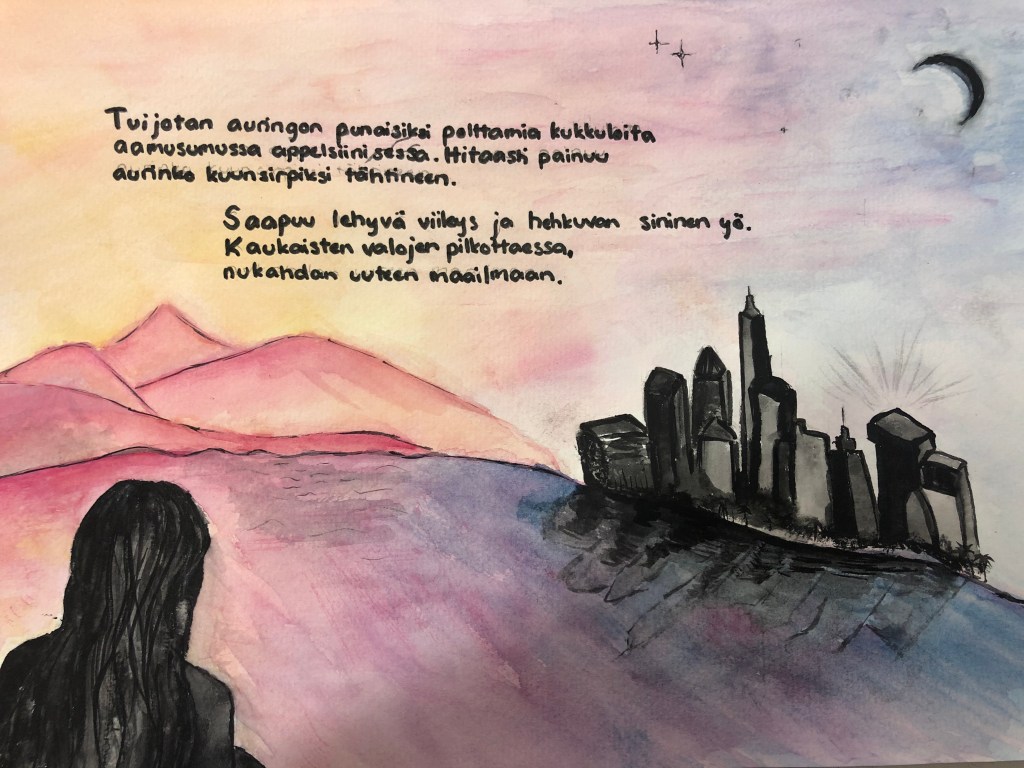 Tuijotan auringon punaisiksi polttamia kukkuloita
aamusumussa appelsiinisessa. Hitaasti painuu
aurinko kuunsirpiksi tähtineen.
Saapuu lehyvä viileys ja hehkuvan sininen yö.
Kaukaisten valojen pilkottaessa,
nukahdan uuteen maailmaan.